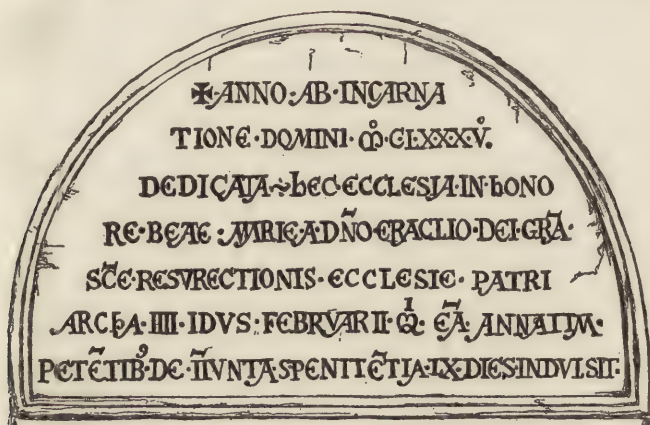 ✠·ANNO·AB·INCARNA
TIONE·DOMINI·M̊·CLXXXV̊.
DEDICATA~hEC·ECCLESIA·IN·hONO
RE·BEAE:MARIE·A·DÑO·ERACLIO·DEI·GRÃ·
SC̃E·RESVRECTIONIS·ECCLESIE·PATRI
ARChA·IIII·IDVS:FEBRVARII·Qͥ·EÃ·ANNATIM·
PETẼTIB⁹·DE·ĨIVNTA·SPENITẼTIA·LX·DIES·INDVLSIT·